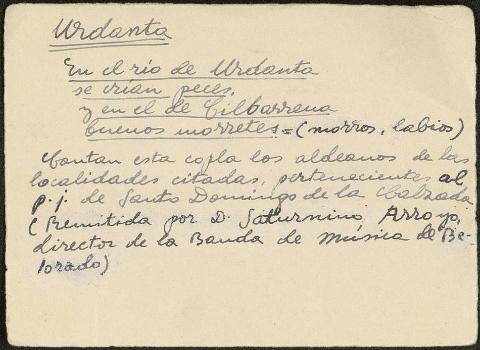 Urdanta
En el río de Urdanta
se crian peces,
y en el de Cilbarrena
buenos morretes. = (morros, labios)
Cantan esta copla los aldeanos de las
localidades citadas, pertenecientes al
p.j. de Santo Domingo de la Calzada
(Remitida por D. Saturnino Arroyo,
director de la Banda de Música de Be-
lorado)